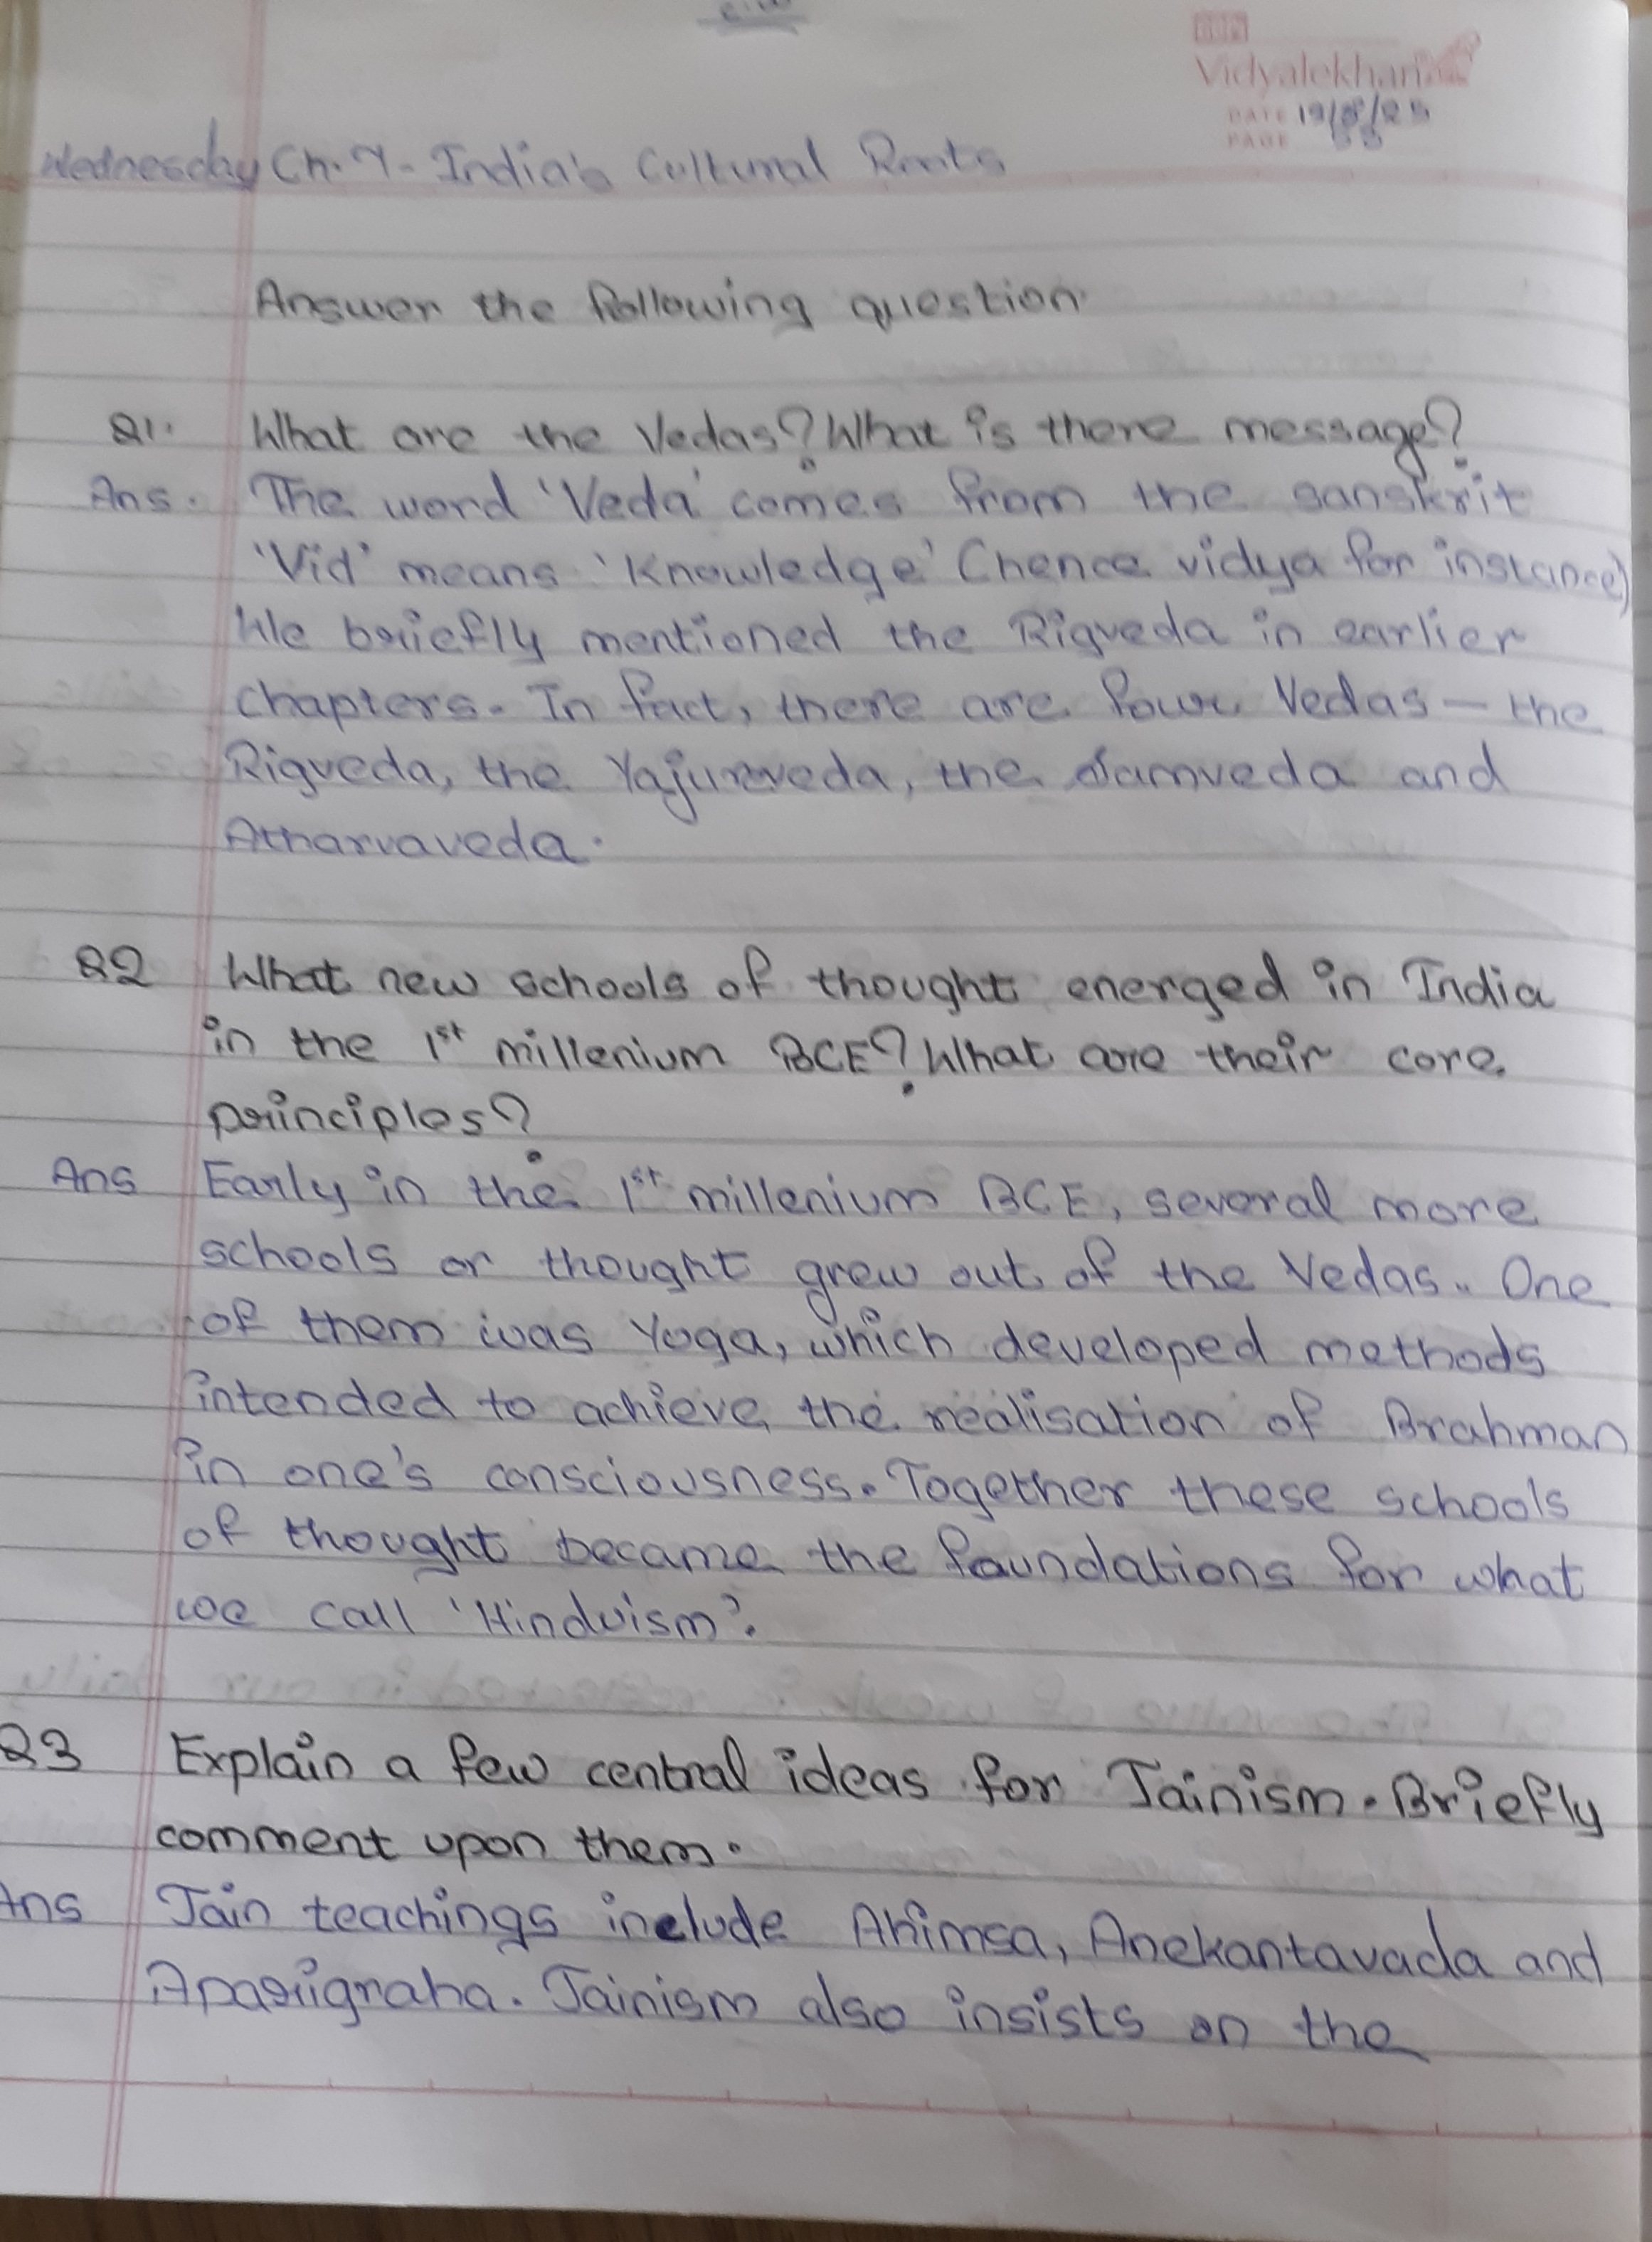 c.w
Vidyalekhan
DATE 19/8/25
PAGE 55
Wednesday Ch.7- India's Cultural Roots
Answer the following question.
Q1. What are the Vedas? What is there message?
Ans. The word 'Veda' comes from the sanskrit
'Vid' means 'Knowledge' (hence vidya for instance)
We briefly mentioned the Rigveda in earlier
chapters. In fact, there are four Vedas — the
Rigveda, the Yajurveda, the Samveda and
Atharvaveda.
Q2 What new schools of thought energed in India
in the 1st millenium BCE? What are their core
principles?
Ans Early in the 1st millenium BCE, several more
schools or thought grew out of the Vedas. One
of them was Yoga, which developed methods
intended to achieve the realisation of Brahman
in one's consciousness. Together these schools
of thought became the foundations for what
we call 'Hinduism'.
Q3 Explain a few central ideas for Jainism. Briefly
comment upon them.
Ans Jain teachings include Ahimsa, Anekantavada and
Aparigraha. Jainism also insists on the